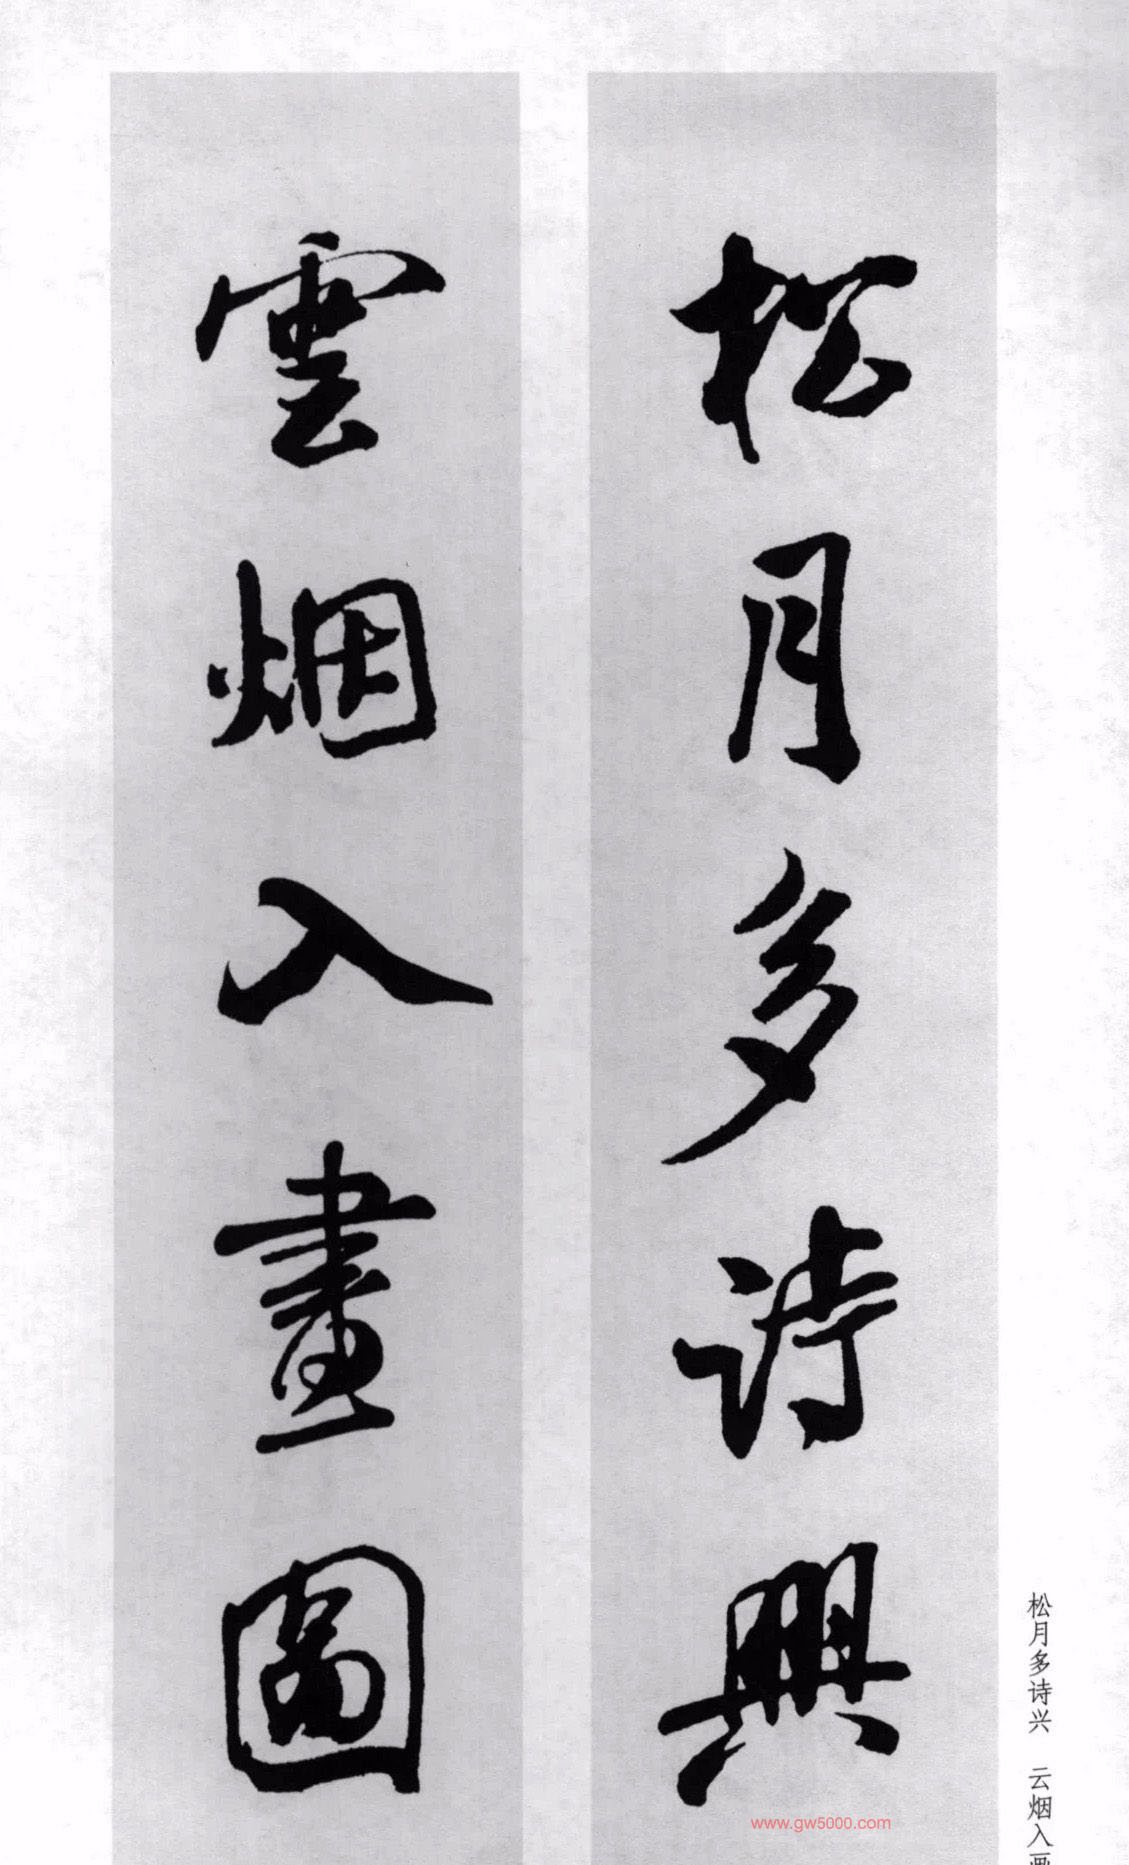 松月多詩興
雲烟入畫圖
松月多诗兴 云烟入画
www.gw5000.com